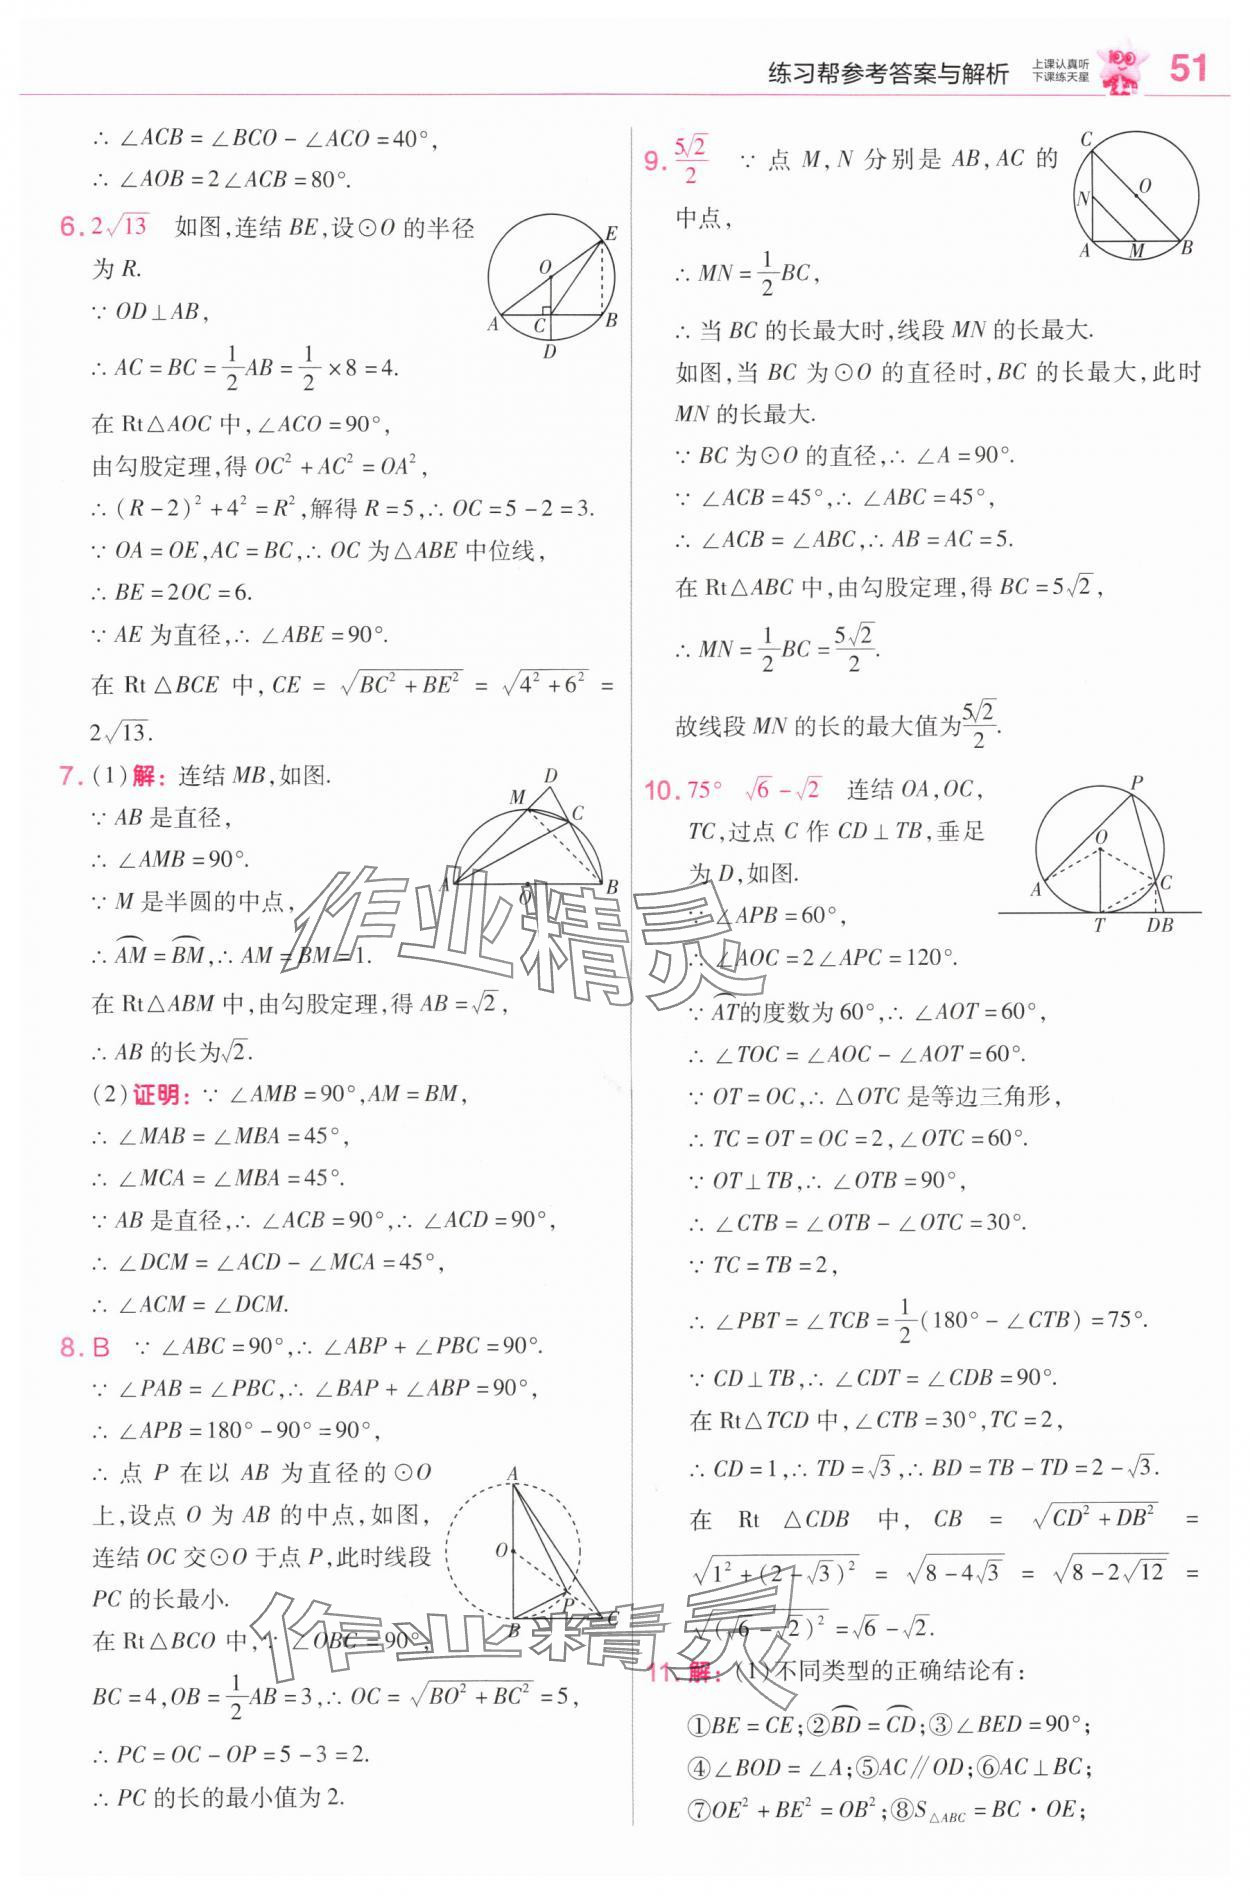 练习帮参考答案与解析 上课认真听 下课练天星 51
∴ ∠ACB = ∠BCO - ∠ACO = 40°,
∴ ∠AOB = 2∠ACB = 80°.
6. 2√13 如图,连结 BE,设⊙O 的半径
为 R.
∵ OD⊥AB,
∴ AC = BC = 1/2 AB = 1/2 × 8 = 4.
在 Rt△AOC 中,∠ACO = 90°,
由勾股定理,得 OC² + AC² = OA²,
∴ (R - 2)² + 4² = R²,解得 R = 5,∴ OC = 5 - 2 = 3.
∵ OA = OE,AC = BC,∴ OC 为△ABE 中位线,
∴ BE = 2OC = 6.
∵ AE 为直径,∴ ∠ABE = 90°.
在 Rt△BCE 中,CE = √(BC² + BE²) = √(4² + 6²) =
2√13.
E
O
A
C
B
D
7. (1)解:连结 MB,如图.
∵ AB 是直径,
∴ ∠AMB = 90°.
∵ M 是半圆的中点,
∴ ⌒AM = ⌒BM,∴ AM = BM = 1.
在 Rt△ABM 中,由勾股定理,得 AB = √2,
∴ AB 的长为√2.
D
M
C
A
O
B
(2)证明:∵ ∠AMB = 90°,AM = BM,
∴ ∠MAB = ∠MBA = 45°,
∴ ∠MCA = ∠MBA = 45°.
∵ AB 是直径,∴ ∠ACB = 90°,∴ ∠ACD = 90°,
∴ ∠DCM = ∠ACD - ∠MCA = 45°,
∴ ∠ACM = ∠DCM.
8. B ∵ ∠ABC = 90°,∴ ∠ABP + ∠PBC = 90°.
∵ ∠PAB = ∠PBC,∴ ∠BAP + ∠ABP = 90°,
∴ ∠APB = 180° - 90° = 90°,
∴ 点 P 在以 AB 为直径的⊙O
上,设点 O 为 AB 的中点,如图,
连结 OC 交⊙O 于点 P,此时线段
PC 的长最小.
在 Rt△BCO 中,∵ ∠OBC = 90°,
BC = 4,OB = 1/2 AB = 3,∴ OC = √(BO² + BC²) = 5,
∴ PC = OC - OP = 5 - 3 = 2.
∴ PC 的长的最小值为 2.
A
O
P
B
C
9. 5√2/2 ∵ 点 M,N 分别是 AB,AC 的
中点,
∴ MN = 1/2 BC,
∴ 当 BC 的长最大时,线段 MN 的长最大.
如图,当 BC 为⊙O 的直径时,BC 的长最大,此时
MN 的长最大.
∵ BC 为⊙O 的直径,∴ ∠A = 90°.
∵ ∠ACB = 45°,∴ ∠ABC = 45°,
∴ ∠ACB = ∠ABC,∴ AB = AC = 5.
在 Rt△ABC 中,由勾股定理,得 BC = 5√2,
∴ MN = 1/2 BC = 5√2/2.
故线段 MN 的长的最大值为5√2/2.
C
O
N
A
M
B
10. 75° √6 - √2 连结 OA,OC,
TC,过点 C 作 CD⊥TB,垂足
为 D,如图.
∵ ∠APB = 60°,
∴ ∠AOC = 2∠APC = 120°.
∵ ⌒AT的度数为 60°,∴ ∠AOT = 60°,
∴ ∠TOC = ∠AOC - ∠AOT = 60°.
∵ OT = OC,∴ △OTC 是等边三角形,
∴ TC = OT = OC = 2,∠OTC = 60°.
∵ OT⊥TB,∴ ∠OTB = 90°,
∴ ∠CTB = ∠OTB - ∠OTC = 30°.
∵ TC = TB = 2,
∴ ∠PBT = ∠TCB = 1/2 (180° - ∠CTB) = 75°.
∵ CD⊥TB,∴ ∠CDT = ∠CDB = 90°.
在 Rt△TCD 中,∠CTB = 30°,TC = 2,
∴ CD = 1,∴ TD = √3,∴ BD = TB - TD = 2 - √3.
在 Rt △CDB 中,CB = √(CD² + DB²) =
√(1² + (2 - √3)²) = √(8 - 4√3) = √(8 - 2√12) =
√((√6 - √2)²) = √6 - √2.
P
O
A
C
T
D B
11. 解:(1)不同类型的正确结论有:
①BE = CE;②⌒BD = ⌒CD;③∠BED = 90°;
④∠BOD = ∠A;⑤AC∥OD;⑥AC⊥BC;
⑦OE² + BE² = OB²;⑧S△ABC = BC · OE;
作业精灵
作业精灵